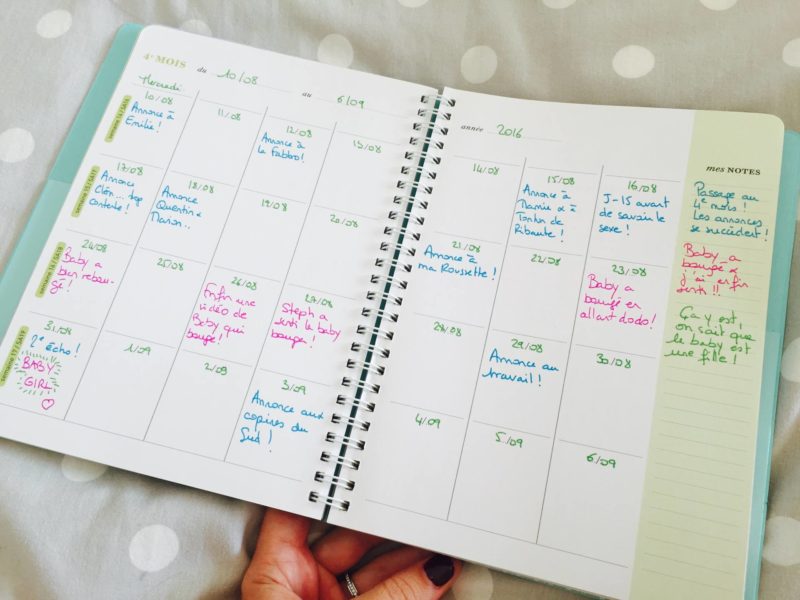 4e MOIS du 10/08 au 6/09
année 2016
Mercredi
semaine 14/SA14
10/08
Annonce à
Emilie !
11/08
12/08
Annonce à
la Fabbro !
13/08
14/08
15/08
Annonce à
Mamie & à
Tonton de
Ribaute !
16/08
J-15 avant
de savoir le
sexe !
semaine 15/SA17
17/08
Annonce
Clén... trop
contente !
18/08
Annonce
Quentin &
Manon..
19/08
20/08
21/08
Annonce à
ma Roussette !
22/08
23/08
Baby a
bougé en
allant dodo !
semaine 16/SA18
24/08
Baby a
bien rebou-
gé !
25/08
26/08
Enfin une
vidéo de
Baby qui
bouge !
27/08
Steph a
senti le baby
bouger !
28/08
29/08
Annonce au
travail !
30/08
semaine 17/SA17
31/08
2e écho !
BABY
GIRL
1/09
2/09
3/09
Annonce aux
copines du
Sud !
4/09
5/09
6/09
mes NOTES
Passage au
4e mois !
Les annonces
se succèdent !
Baby a
bougé &
j'ai enfin
senti !!
Ça y est,
on sait que
le baby est
une fille !